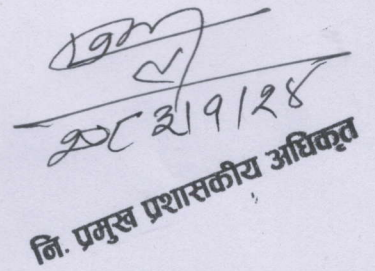 २०८३।१।२४
नि. प्रमुख प्रशासकीय अधिकृत